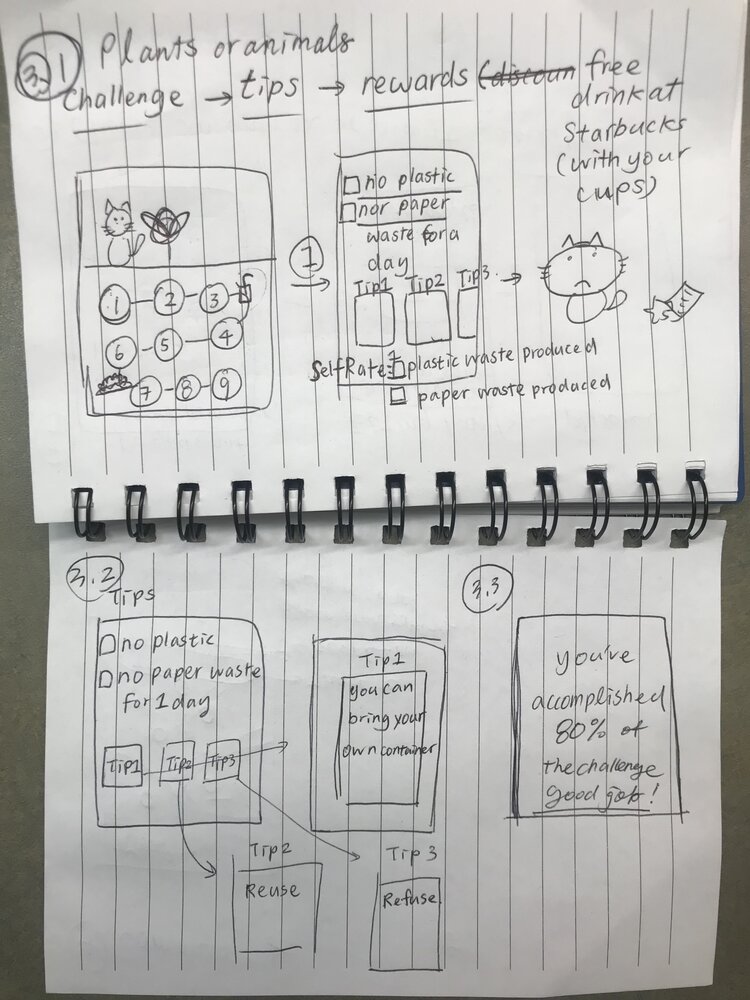 3.1
Plants or animals
Challenge → tips → rewards (discoun free
drink at
Starbucks
(with your
cups)
1 2 3
6 5 4
7 8 9
1
no plastic
nor paper
waste for a
day
Tip1 Tip2 Tip3
SelfRate:
plastic waste produced
paper waste produced
3.2
Tips
no plastic
no paper waste
for 1 day
Tip1 Tip2 Tip3
Tip1
you can
bring your
own container
Tip2
Reuse
Tip 3
Refuse
3.3
you've
accomplished
80% of
the challenge
good job!